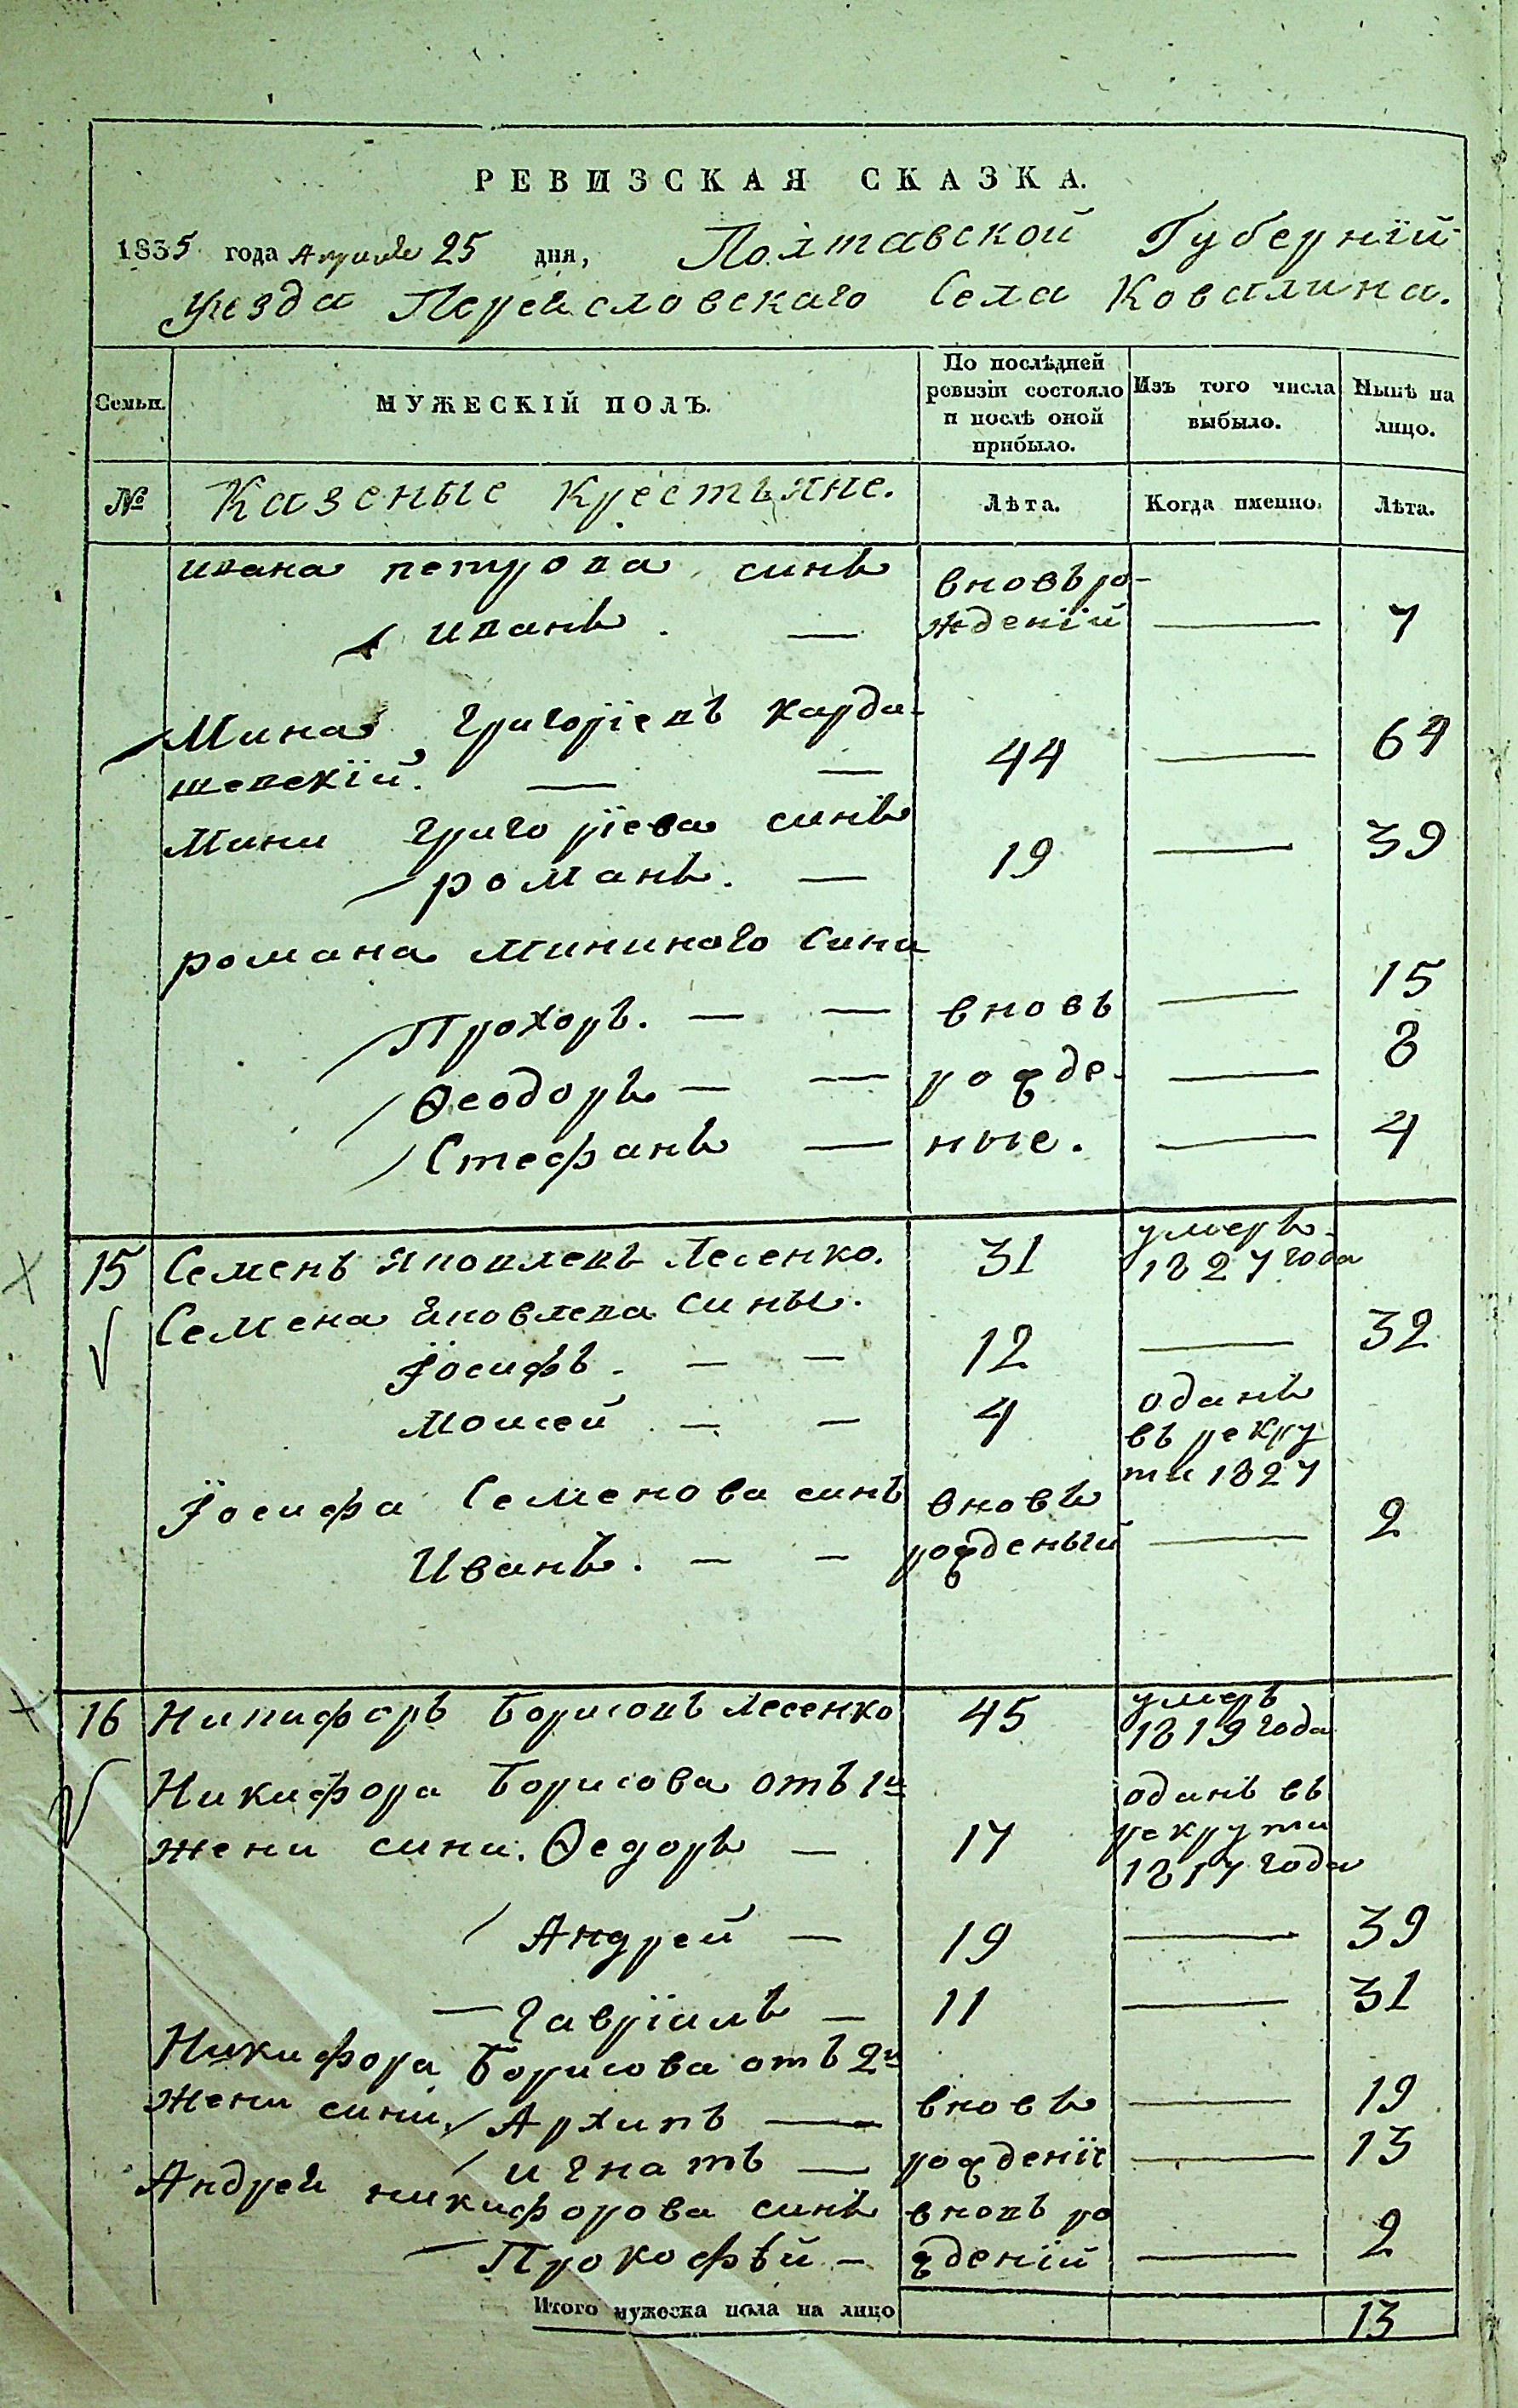 РЕВИЗСКАЯ СКАЗКА.
1835 года Апреля 25 дня, Полтавской Губерній
уезда Переясловскаго Села Ковалина.
Семьи. МУЖЕСКІЙ ПОЛЪ. По послѣдней ревизіи состояло и послѣ оной прибыло. Изъ того числа выбыло. Нынѣ на лицо.
№ Казеные Крестьяне. Лѣта. Когда именно. Лѣта.
ивана петрова синъ вновъ ро-
иванъ. — жденій — 7
Мина григорієвъ карда-
шевскій. — — 44 — 64
Мини григорієва синъ
романъ. — 19 — 39
романа Мининого сини
Прохоръ. — — вновъ — 15
Ѳеодоръ — — рожде- — 8
Стефанъ — ные. — 4
15 Семенъ Яковлевъ Лесенко. 31 умеръ 1827 года
Семена Яковлева Сины.
Їосифъ. — — 12 — 32
Моисей — — 4 оданъ въ рекру ти 1827
Їосифа Семенова синъ вновъ
Иванъ. — — рожденый — 2
16 Никифоръ Борисовъ Лесенко 45 умеръ 1819 года
Никифора Борисова отъ 1й
жени сини. Ѳедоръ — 17 оданъ въ рекрути 1817 года
Андрей — 19 — 39
Гавріилъ — 11 — 31
Никифора Борисова отъ 2й
жени сини, Архипъ — вновъ — 19
игнатъ — рожденіе — 13
Андрей никифорова синъ вновъ ро
Прокофѣй — жденій — 2
Итого мужеска пола на лицо 13